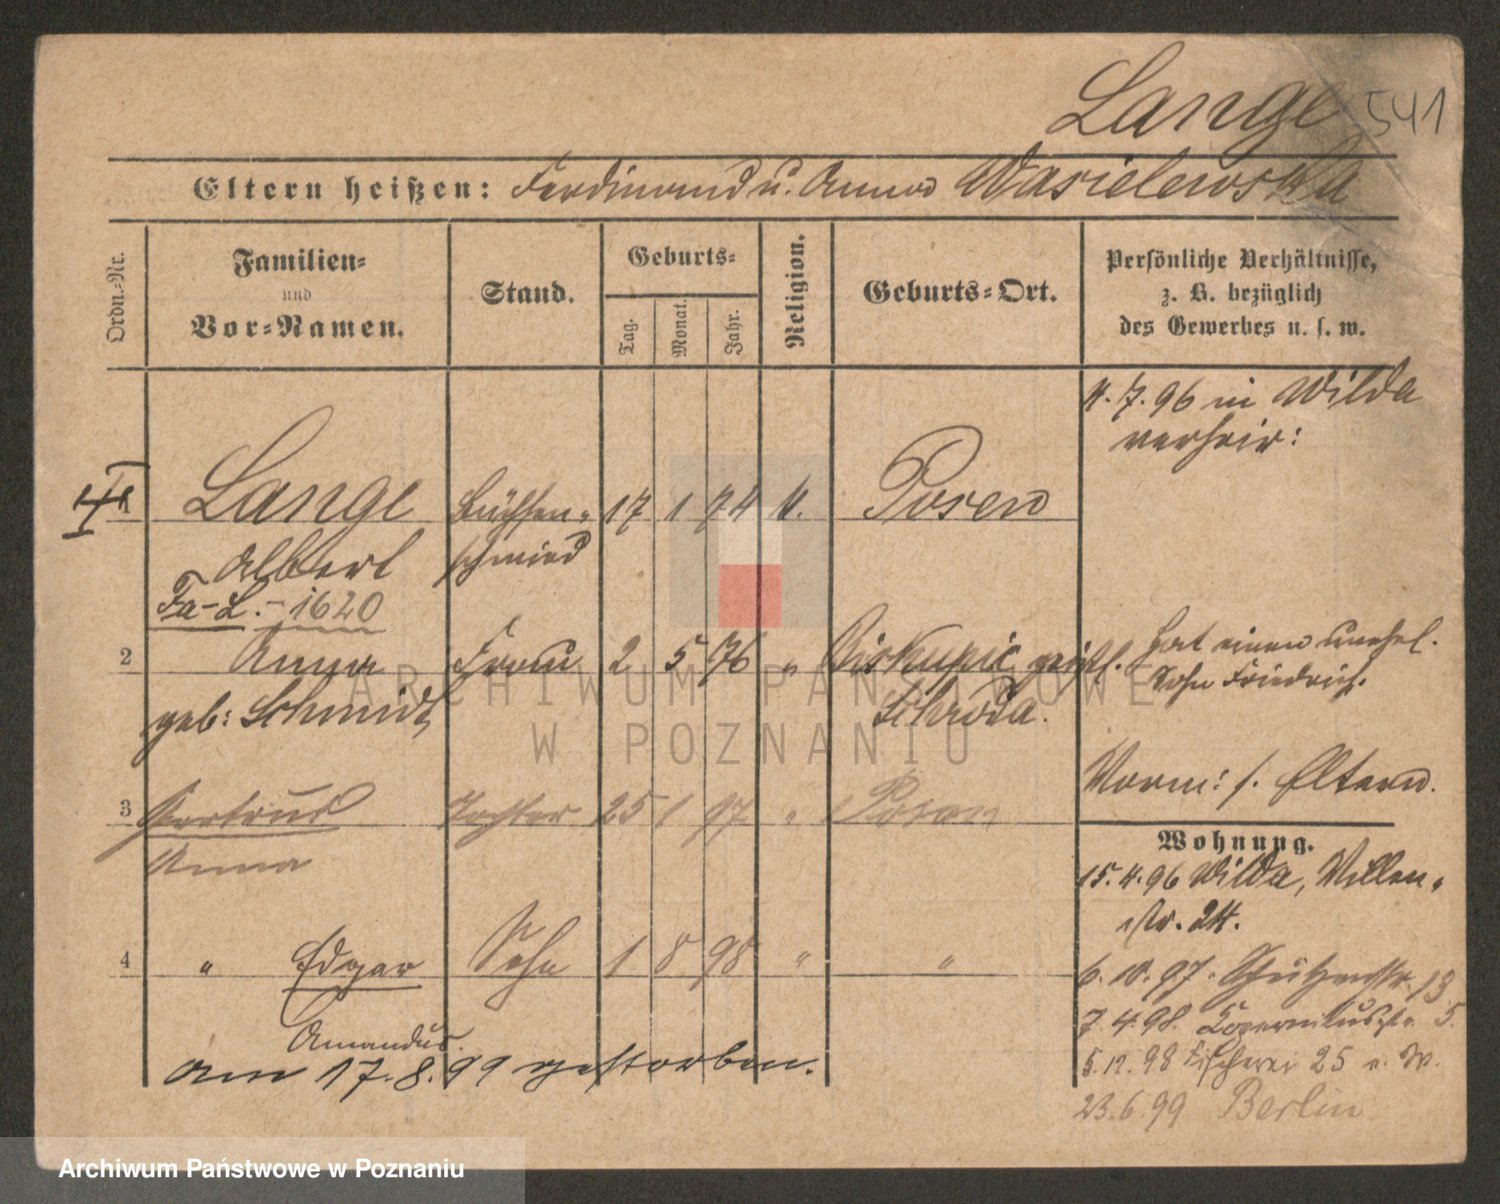 Lange 541
Eltern heißen: Ferdinand u. Anna Wasielewska
Ordn.-Nr.
Familien-
und
Vor-Namen.
Stand.
Geburts-
Tag.
Monat.
Jahr.
Religion.
Geburts-Ort.
Persönliche Verhältnisse,
z. B. bezüglich
des Gewerbes u. s. w.
4. 7. 96 in Wilda
verheir:
Lange Büchsen- 17 1 74 K. Posen
Albert schmied
Fa-L.-1620
2 Anna Frau 2 5 76 " Biskupic
geb: Schmidt Schroda.
Hat einen unehel.
Sohn Friedrich.
Vorm: s. Eltern.
3 Gertrud Tochter 25 1 97 " Posen
Anna
4 " Edgar Sohn 1 8 98 " "
Amandus.
Am 17. 8. 99 gestorben.
Wohnung.
15. 4. 96 Wilda, Villen-
str. 24.
6. 10. 97. Schützenstr. 13
7. 4. 98. Kopernikusstr. 5.
5. 12. 98 Fischerei 25
23. 6. 99 Berlin
ARCHIWUM PAŃSTWOWE
W POZNANIU
Archiwum Państwowe w Poznaniu